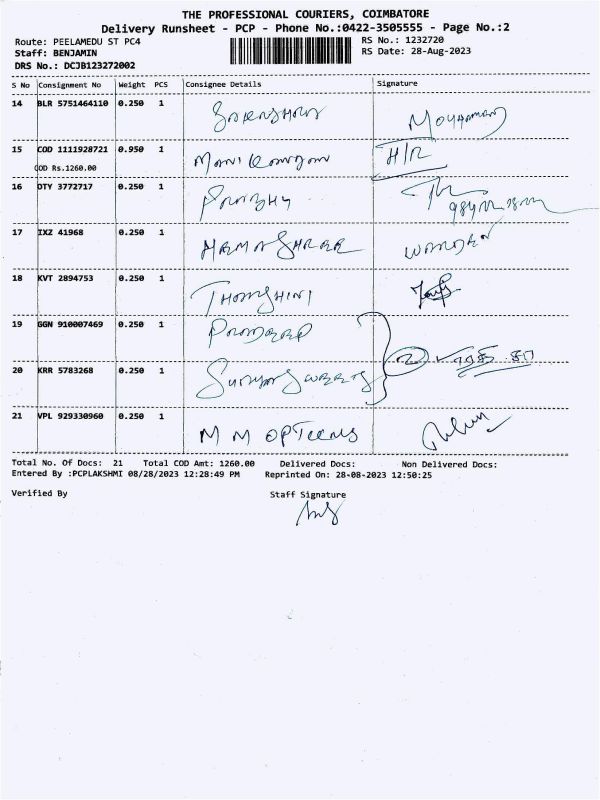 THE PROFESSIONAL COURIERS, COIMBATORE
Delivery Runsheet - PCP - Phone No.:0422-3505555 - Page No.:2
Route: PEELAMEDU ST PC4
RS No.: 1232720
Staff: BENJAMIN
RS Date: 28-Aug-2023
DRS No.: DCJB123272002
S No Consignment No Weight PCS Consignee Details Signature
14 BLR 5751464110 0.250 1
15 COD 1111928721 0.950 1 H/R
COD Rs.1260.00
16 DTY 3772717 0.250 1 PRABHU
17 IXZ 41968 0.250 1 HEMASHREE WARDEN
18 KVT 2894753 0.250 1 THARSHINI
19 GGN 910007469 0.250 1 PRADEEP
20 KRR 5783268 0.250 1 2
21 VPL 929330960 0.250 1 M M OPTICALS
Total No. Of Docs: 21 Total COD Amt: 1260.00 Delivered Docs: Non Delivered Docs:
Entered By :PCPLAKSHMI 08/28/2023 12:28:49 PM Reprinted On: 28-08-2023 12:50:25
Verified By Staff Signature